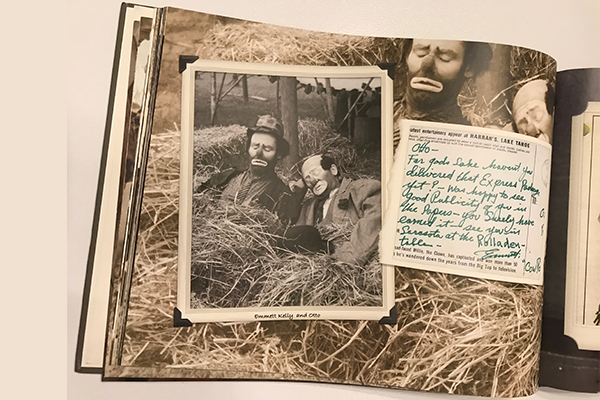 Emmett Kelly and Otto
latest entertainers appear at HARRAH'S, LAKE TAHOE
Otto—
For gods sake haven't you
delivered that Express Package
yet? — Was happy to see
Good Publicity of you in
the Papers — you surely have
earned it — see you in
Sarasota at the
Emmett
sad-faced Willie, the Clown, has captivated
he's wandered down the years from the Big Top to television.